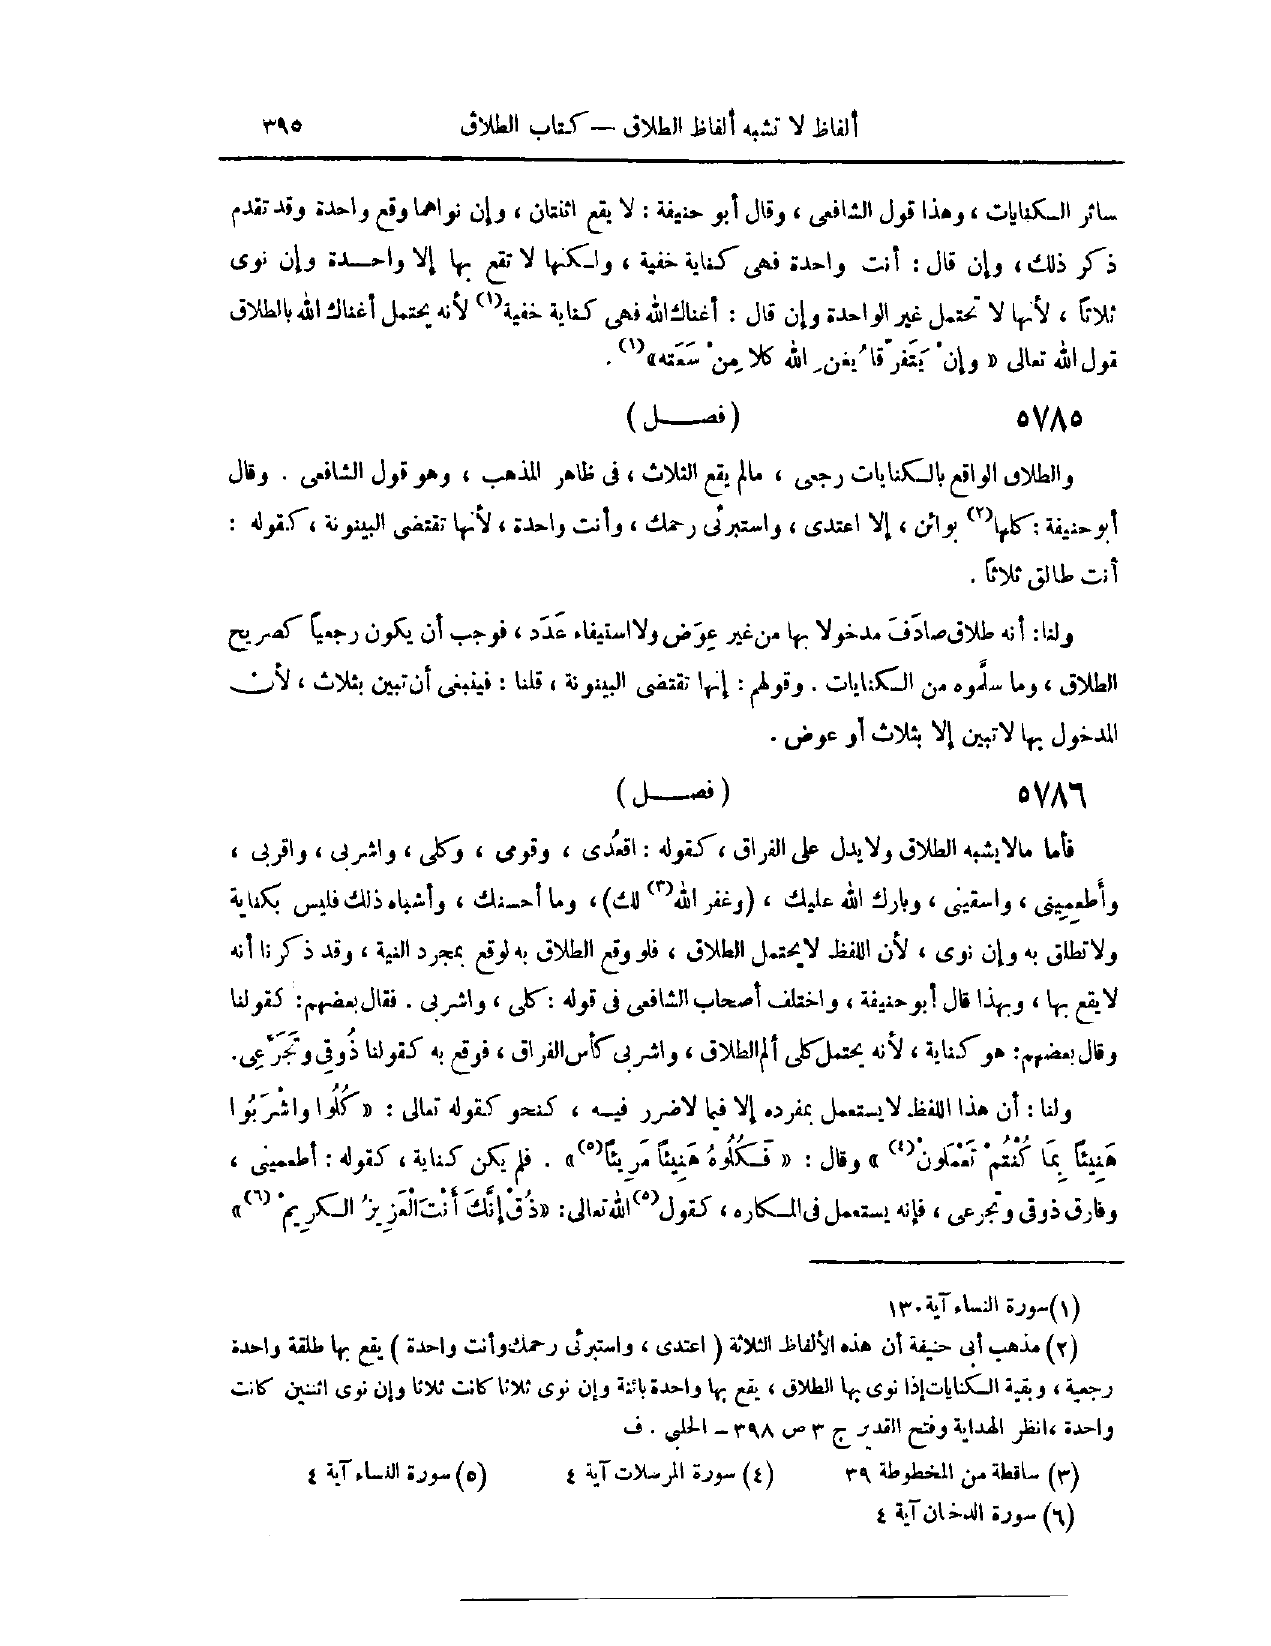 ألفاظ لا تشبه ألفاظ الطلاق — كتاب الطلاق ٣٩٥
سائر الكنايات ، وهذا قول الشافعى ، وقال أبو حنيفة : لا يقع اثنتان ، وإن نواهما وقع واحدة وقد تقدم
ذكر ذلك ، وإن قال : أنت واحدة فهى كناية خفية ، ولكنها لا تقع بها إلا واحـــدة وإن نوى
ثلاثاً ، لأنها لا تحتمل غير الواحدة وإن قال : أغناك الله فهى كناية خفية(١) لأنه يحتمل أغناك الله بالطلاق
قول الله تعالى « وإنْ يَتَفرّقا يُغنِ الله كلا مِنْ سَعَته»(١) .
٥٧٨٥ (فصـــــل)
والطلاق الواقع بالكنايات رجعى ، مالم يقع الثلاث ، فى ظاهر المذهب ، وهو قول الشافعى . وقال
أبو حنيفة : كلها(٢) بوائن ، إلا اعتدى ، واستبرئى رحمك ، وأنت واحدة ، لأنها تقتضى البينونة ، كقوله :
أنت طالق ثلاثاً .
ولنا: أنه طلاق صادَفَ مدخولا بها من غير عِوَض ولا استيفاء عَدَد ، فوجب أن يكون رجعياً كصريح
الطلاق ، وما سلَّموه من الكنايات . وقولهم : إنها تقتضى البينونة ، قلنا : فينبغى أن تبين بثلاث ، لأن
المدخول بها لا تبين إلا بثلاث أو عوض .
٥٧٨٦ (فصـــــل)
فأما مالا يشبه الطلاق ولا يدل على الفراق ، كقوله : اقعُدى ، وقومى ، وكلى ، واشربى ، واقربى ،
وأطعِمِينى ، واسقينى ، وبارك الله عليك ، (وغفر الله(٣) لك) ، وما أحسنك ، وأشباه ذلك فليس بكناية
ولا تطلق به وإن نوى ، لأن اللفظ لا يحتمل الطلاق ، فلو وقع الطلاق به لوقع بمجرد النية ، وقد ذكرنا أنه
لا يقع بها ، وبهذا قال أبو حنيفة ، واختلف أصحاب الشافعى فى قوله : كلى ، واشربى . فقال بعضهم: كقولنا
وقال بعضهم: هو كناية ، لأنه يحتمل كلى ألم الطلاق ، واشربى كأس الفراق ، فوقع به كقولنا ذُوقِى وتَجَرّعِى.
ولنا : أن هذا اللفظ لا يستعمل بمفرده إلا فيما لاضرر فيـــه ، كنحو كقوله تعالى : « كُلُوا واشْرَبُوا
هَنِيئاً بِمَا كُنْتُمْ تَعْمَلونْ(٤) » وقال : « فَـكُلُوهُ هَنِيئاً مَرِيئاً(٥)» . فلم يكن كناية ، كقوله : أطعمينى ،
وفارق ذوقى وتجرعى ، فإنه يستعمل فى المكاره ، كقول(٥) الله تعالى: «ذُقْ إنَّكَ أَنْتَ الْعَزِيزُ الـكريمْ(٦)»
(١) سورة النساء آية ١٣٠
(٢) مذهب أبى حنيفة أن هذه الألفاظ الثلاثة ( اعتدى ، واستبرئى رحمك وأنت واحدة ) يقع بها طلقة واحدة
رجعية ، وبقية الكنايات إذا نوى بها الطلاق ، يقع بها واحدة بائنة وإن نوى ثلاثا كانت ثلاثا وإن نوى اثنتين كانت
واحدة ، انظر الهداية وفتح القدير ج ٣ ص ٣٩٨ – الحلبي . ف
(٣) ساقطة من المخطوطة ٣٩ (٤) سورة المرسلات آية ٤ (٥) سورة النساء آية ٤
(٦) سورة الدخان آية ٤